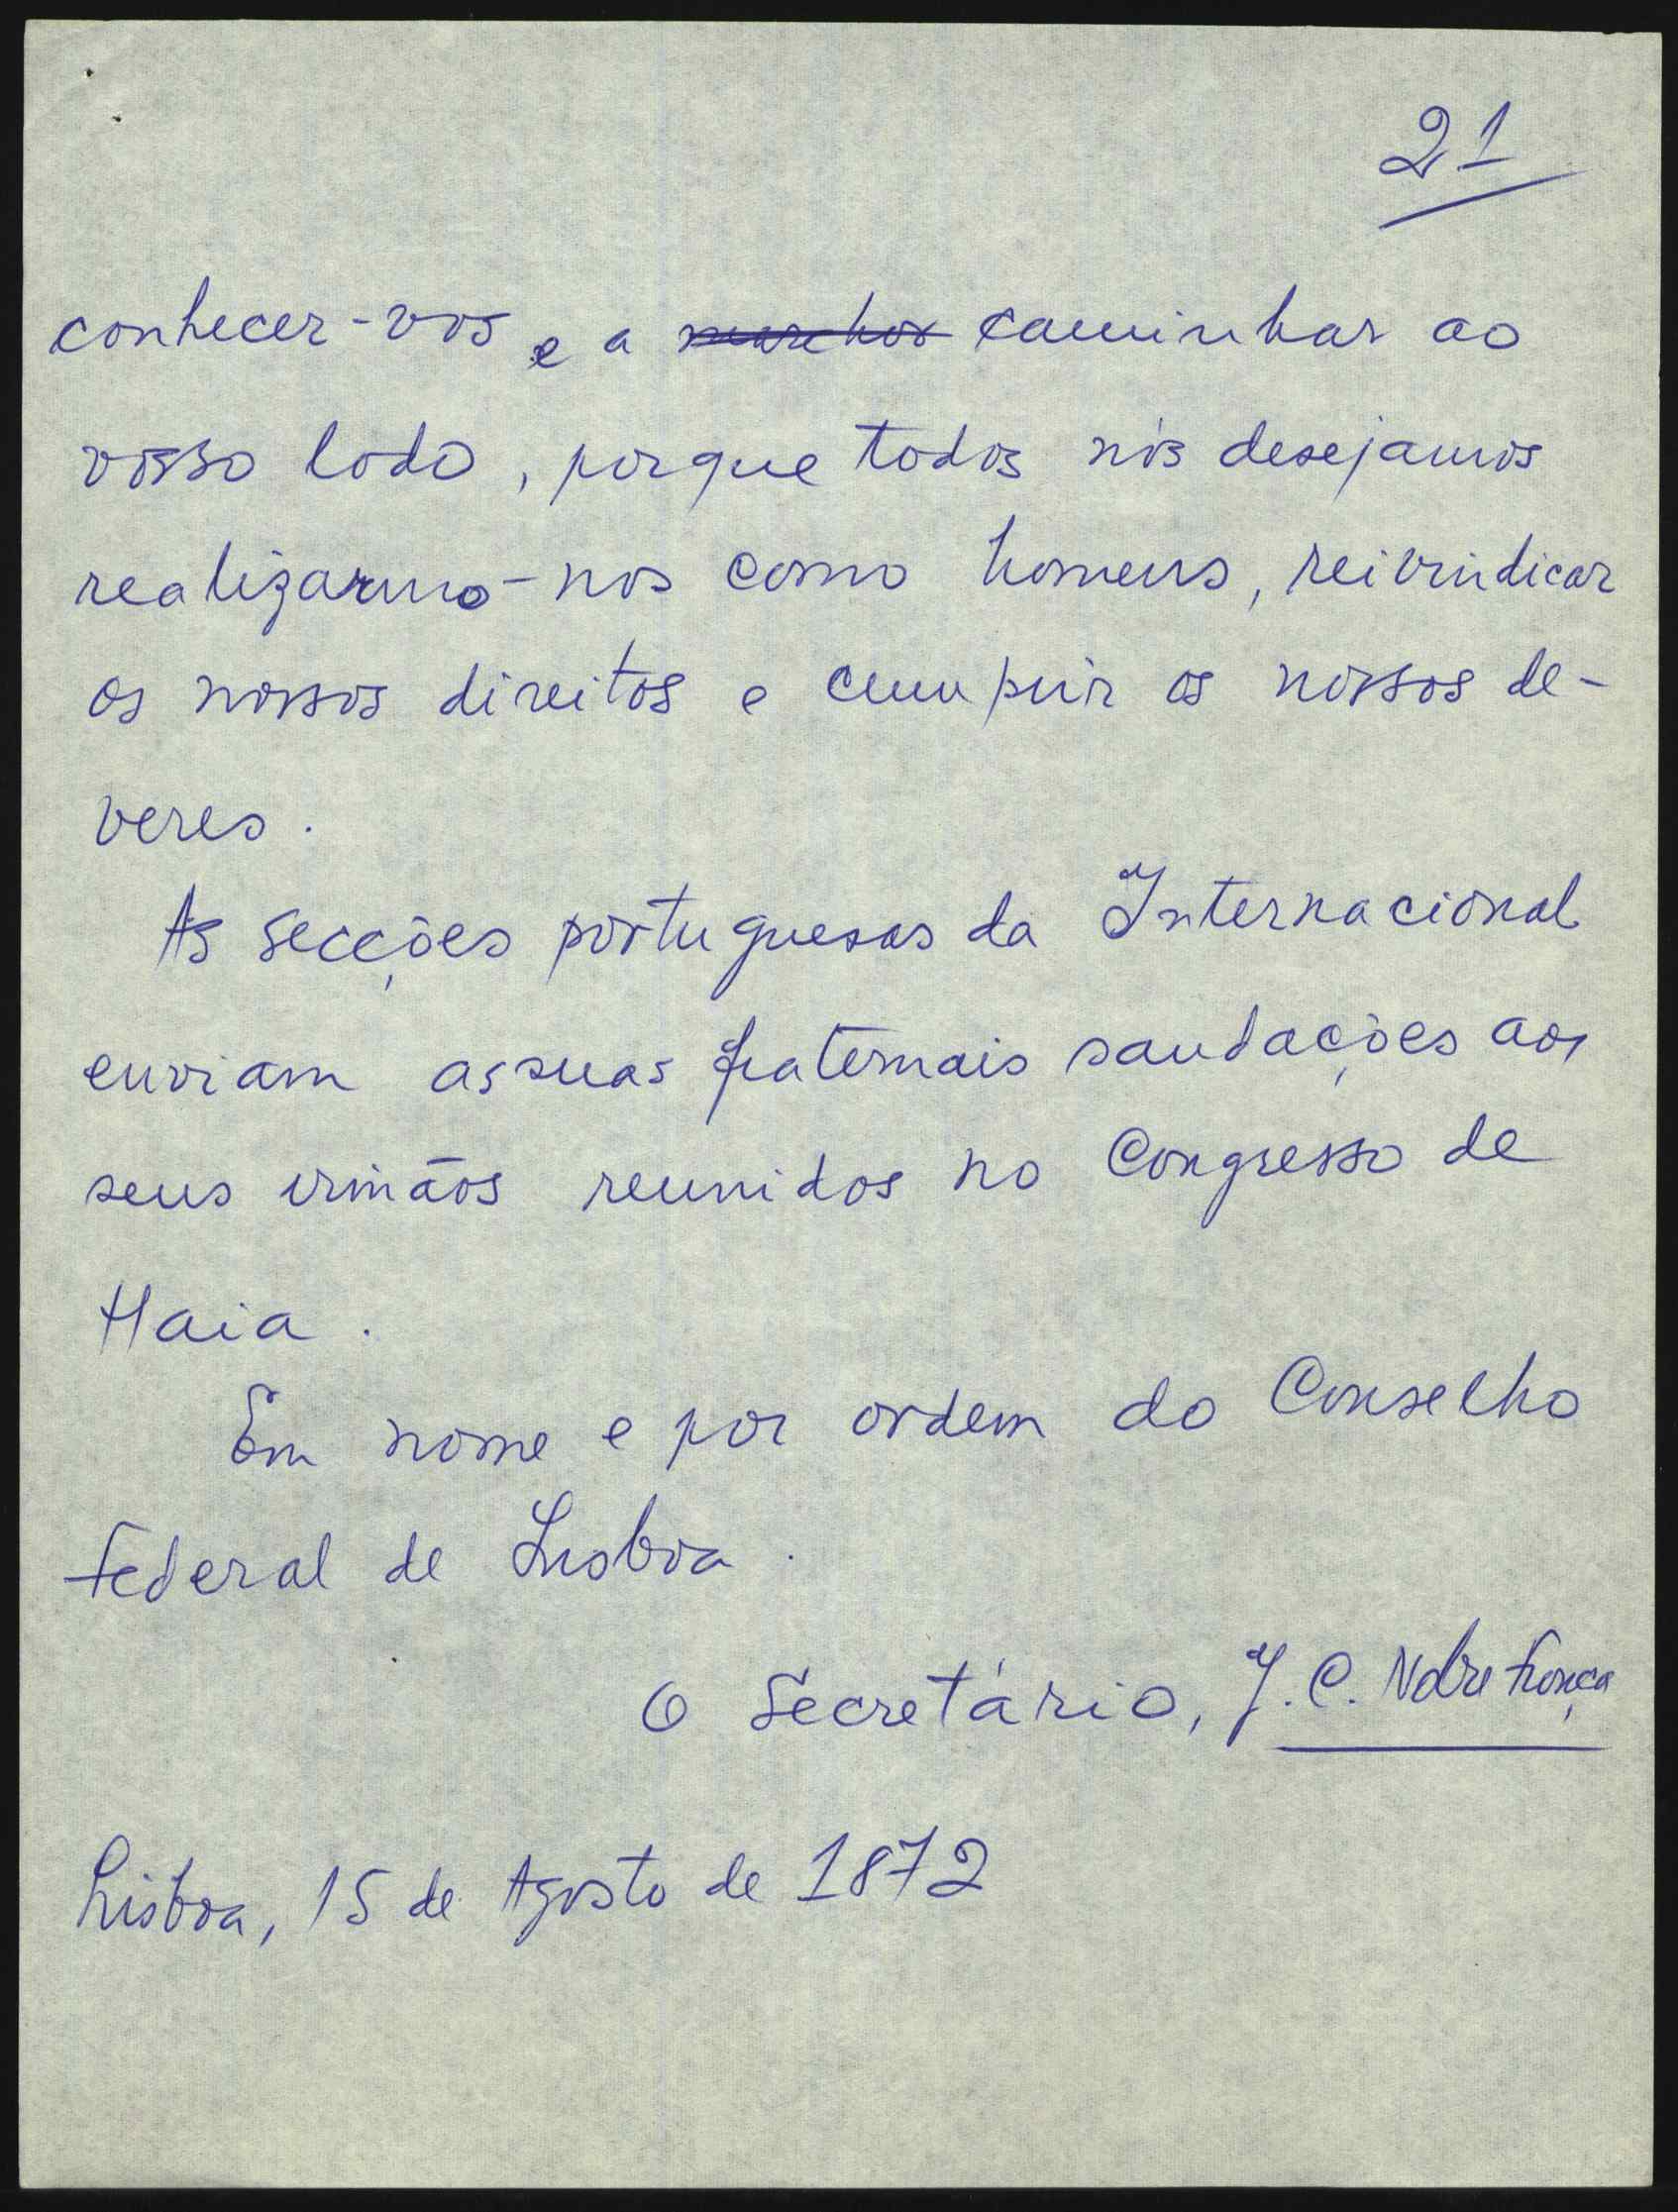 21
conhecer-vos e a marchar caminhar ao
vosso lado, porque todos nós desejamos
realizarmo-nos como homens, reivindicar
os nossos direitos e cumprir os nossos de-
veres.
As secções portuguesas da Internacional
enviam as suas fraternais saudações aos
seus irmãos reunidos no Congresso de
Haia.
Em nome e por ordem do Conselho
Federal de Lisboa.
O Secretário, J. C. Nobre França
Lisboa, 15 de Agosto de 1872